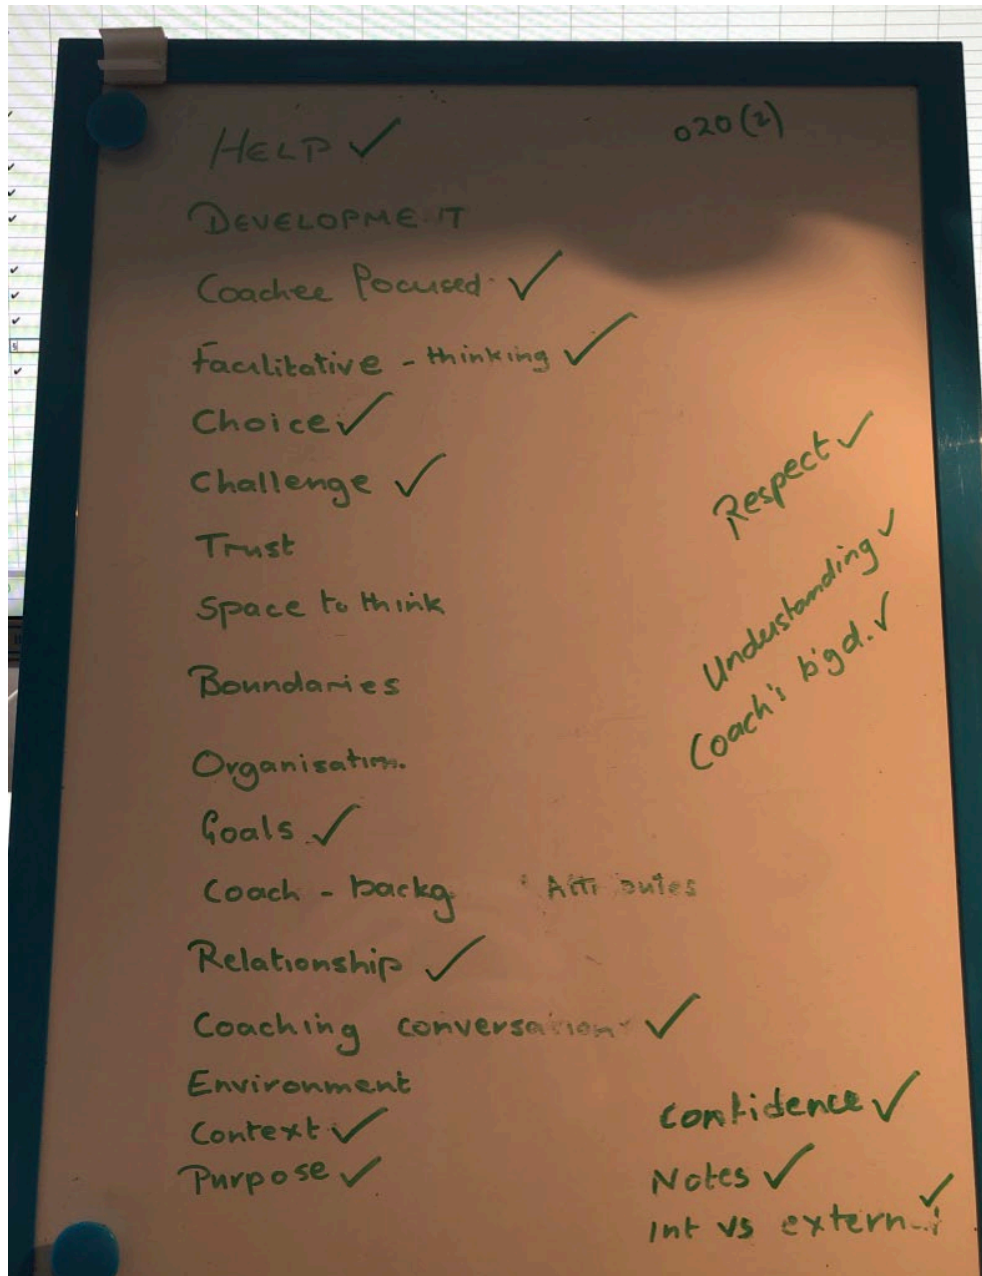 HELP ✓
020(2)
DEVELOPMENT
Coachee Focused ✓
Facilitative - thinking ✓
Choice ✓
Challenge ✓
Trust
Space to think
Boundaries
Organisation.
Goals ✓
Coach - backg Attributes
Relationship ✓
Coaching conversation ✓
Environment
Context ✓
Purpose ✓
Respect ✓
Understanding ✓
Coach's b'gd. ✓
Confidence ✓
Notes ✓
Int vs external ✓